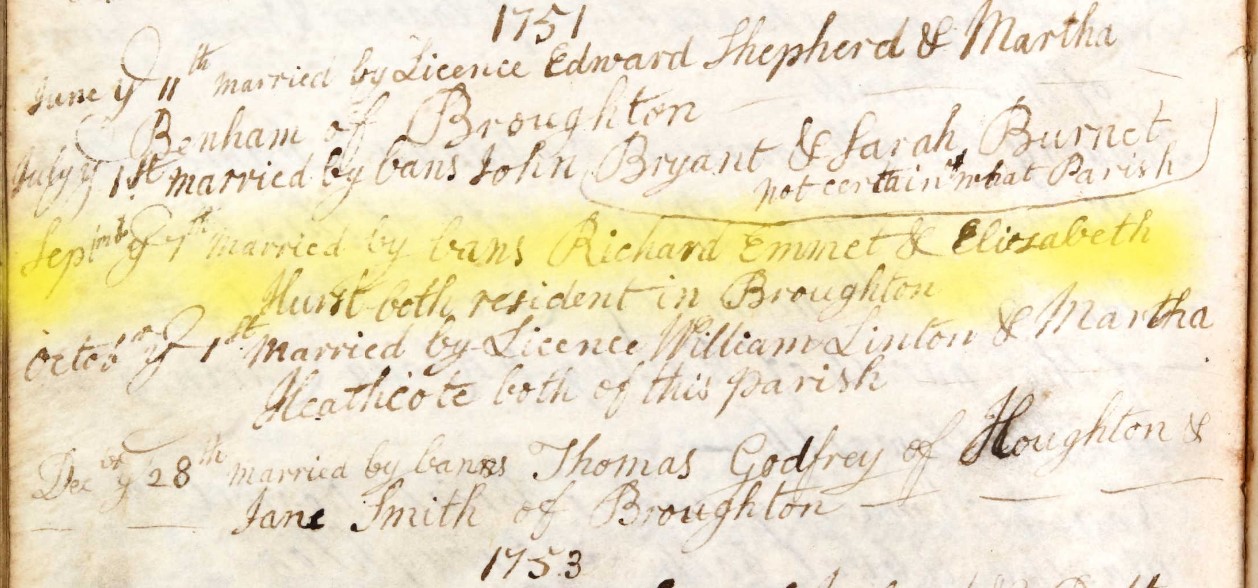 1751
June ye 11th married by Licence Edward Shepherd & Martha
Benham of Broughton
July ye 1st married by bans John Bryant & Sarah Burnet
not certain what Parish
Septmbr ye 7th married by bans Richard Emmet & Eliezabeth
Hurst both resident in Broughton
Octobr ye 1st married by Licence William Linton & Martha
Heathcote both of this parish
Decbr ye 28th married by banns Thomas Godfrey of Houghton &
Jane Smith of Broughton
1753